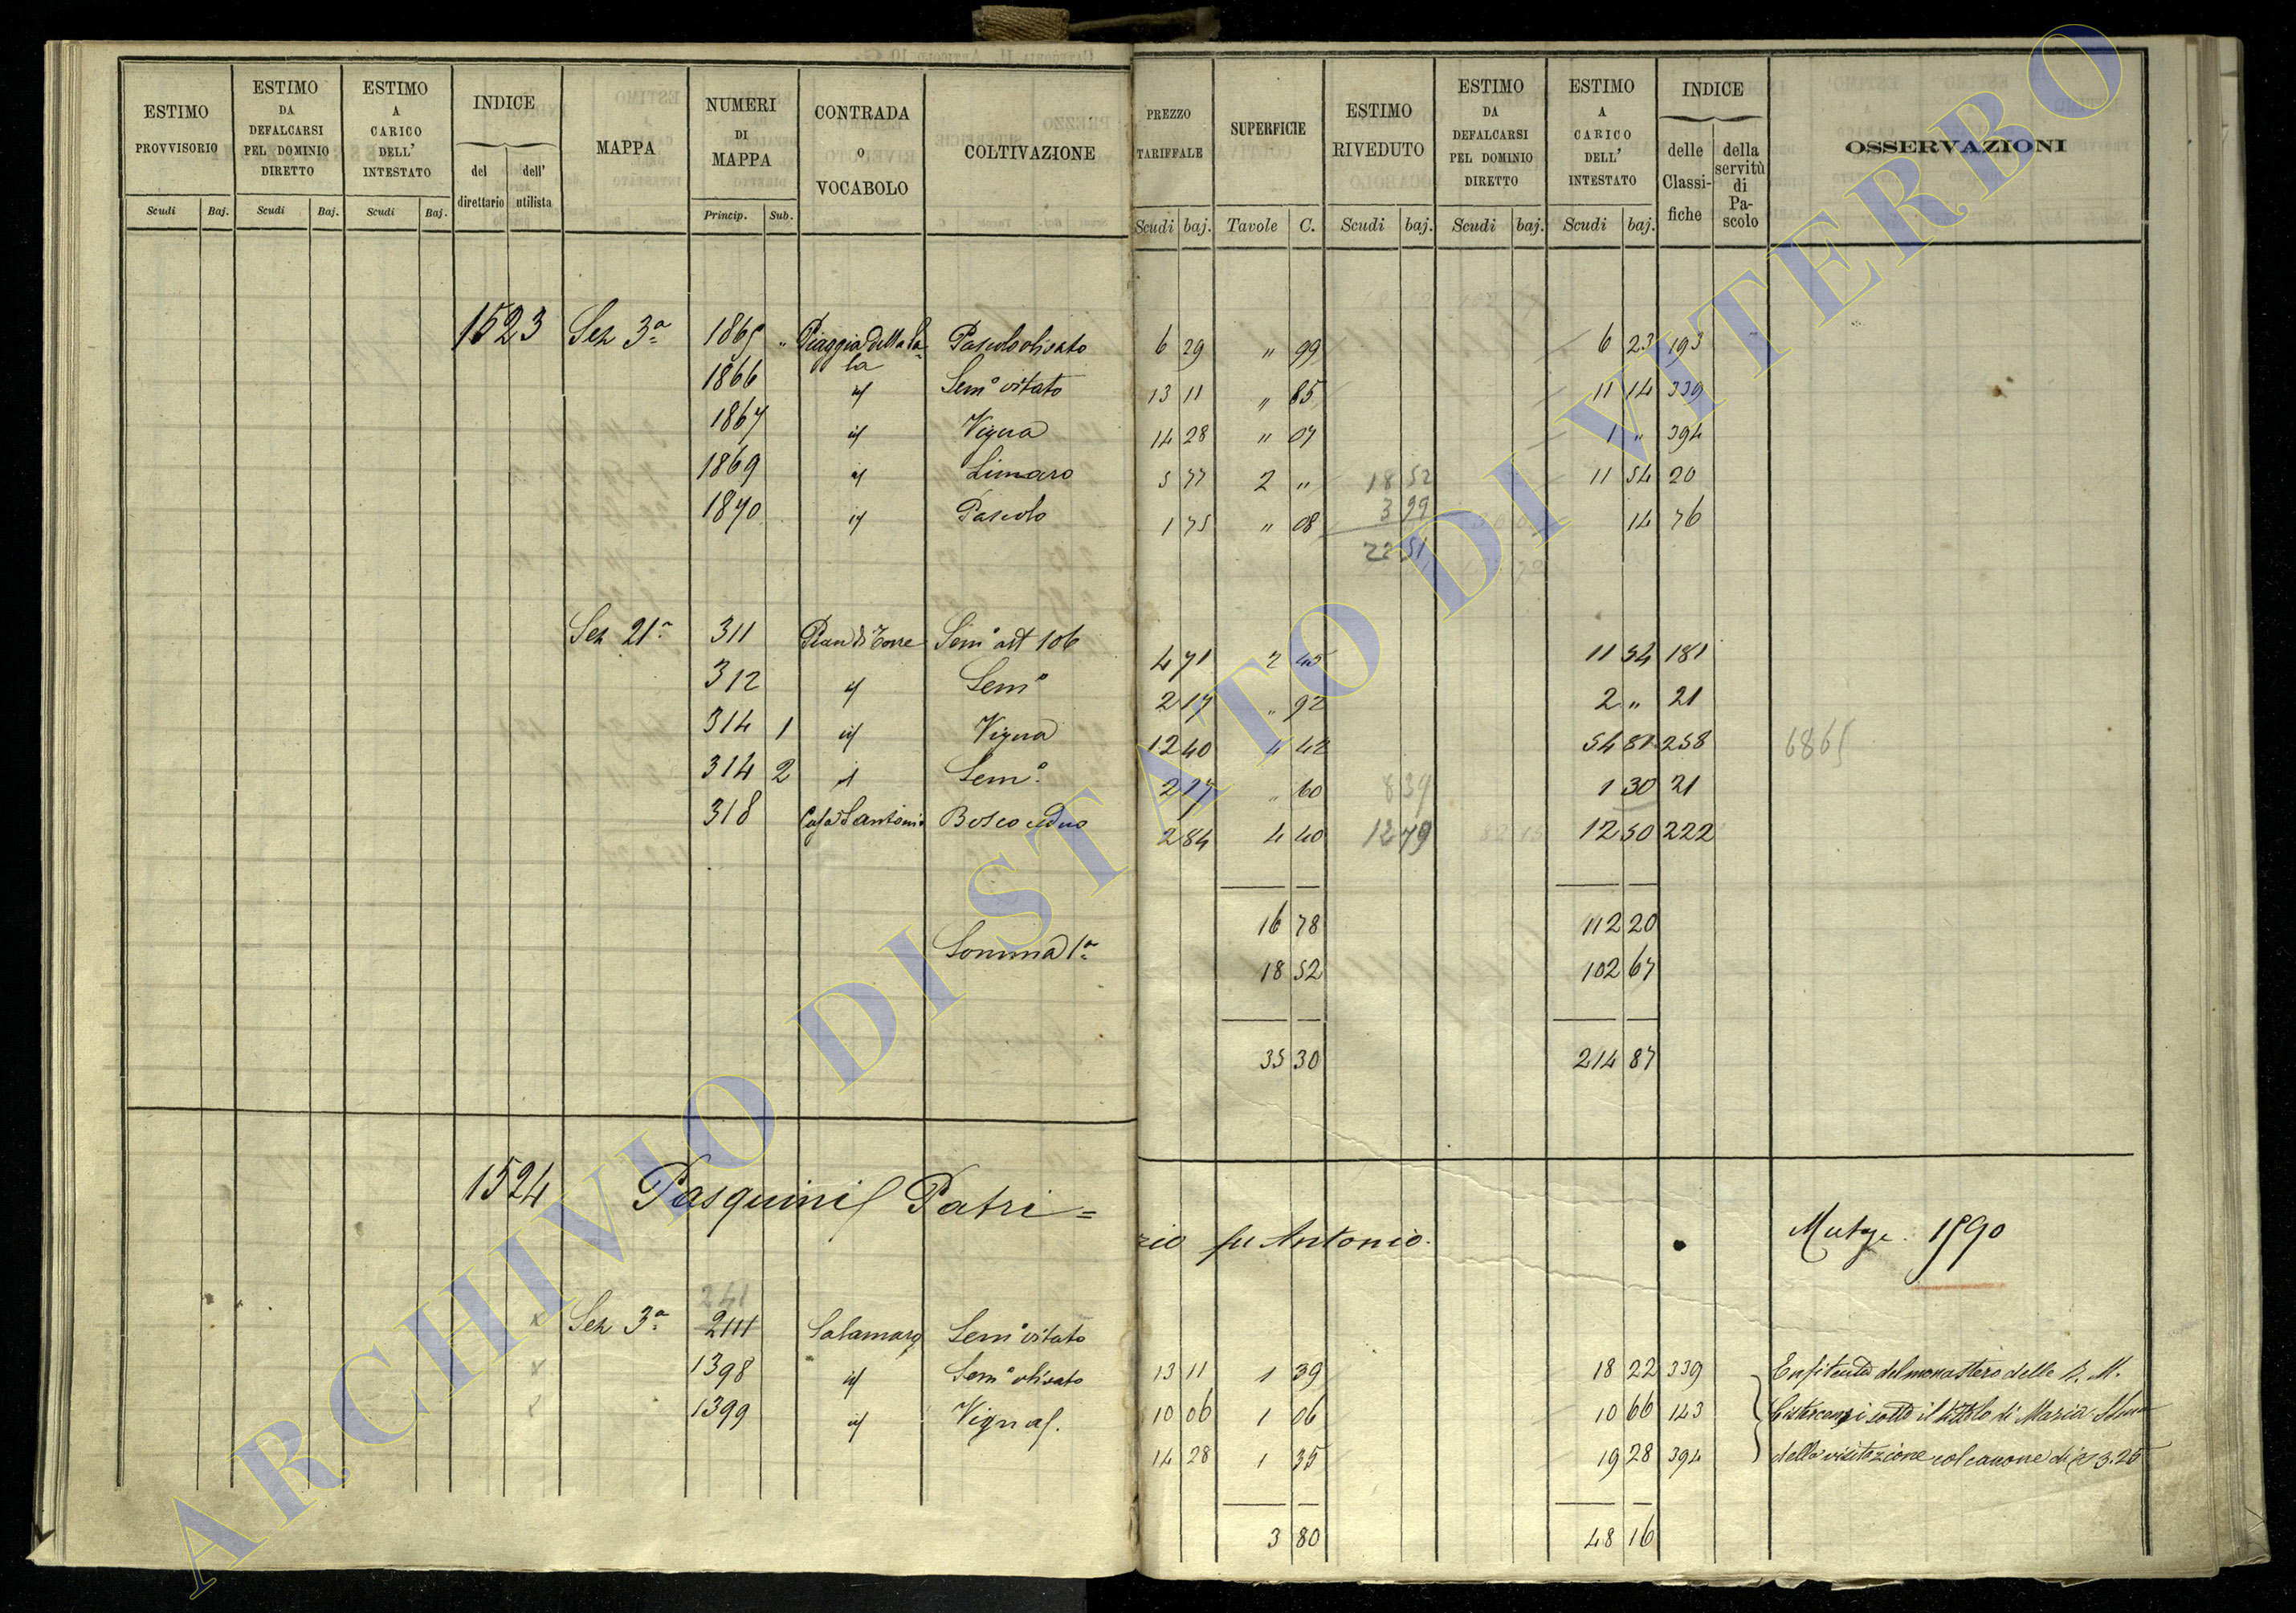 ESTIMO PROVVISORIO | ESTIMO DA DEFALCARSI PEL DOMINIO DIRETTO | ESTIMO A CARICO DELL' INTESTATO | INDICE del direttario dell' utilista | MAPPA | NUMERI DI MAPPA | CONTRADA O VOCABOLO | COLTIVAZIONE | PREZZO TARIFFALE | SUPERFICIE | ESTIMO RIVEDUTO | ESTIMO DA DEFALCARSI PEL DOMINIO DIRETTO | ESTIMO A CARICO DELL' INTESTATO | INDICE delle Classifiche della servitù di Pascolo | OSSERVAZIONI
Scudi Baj. Scudi Baj. Scudi Baj. Princip. Sub. Scudi baj. Tavole C. Scudi baj. Scudi baj. Scudi baj.
1523 Sez 3a 1865 " Piaggia della Sala Pascolo olivato 6 29 " 99 6 23 193 "
1866 id Semo vitato 13 11 " 85 11 14 339
1867 id Vigna 14 28 " 07 1 " 394
1869 id 5 77 2 " 18 52 11 54 20
1870 id Pascolo 1 75 " 08 3 99 14 76
22 51
Sez 21a 311 Pian di Torre Semo art 106 4 71 2 45 11 54 181
312 id Semo 2 17 " 92 2 " 21
314 1 id Vigna 12 40 4 42 54 81 258 6865
314 2 id Semo 2 17 " 60 8 39 1 30 21
318 Casa S Antonio Bosco ceduo 2 84 4 40 12 79 12 50 222
16 78 112 20
Somma 1a 18 52 102 67
35 30 214 87
1524 Pasquini Patri=
zio fu Antonio. 1890
241
Sez 3a 2111 Salamaro Semo vitato 13 11 1 39 18 22 339 Enfiteuta del monastero delle R. M.
1398 id Semo olivato 10 06 1 06 10 66 143 Cistercensi sotto il titolo di Maria
1399 id Vigna 14 28 1 35 19 28 394 della visitazione col canone di 3.25
3 80 48 16
ARCHIVIO DI STATO DI VITERBO